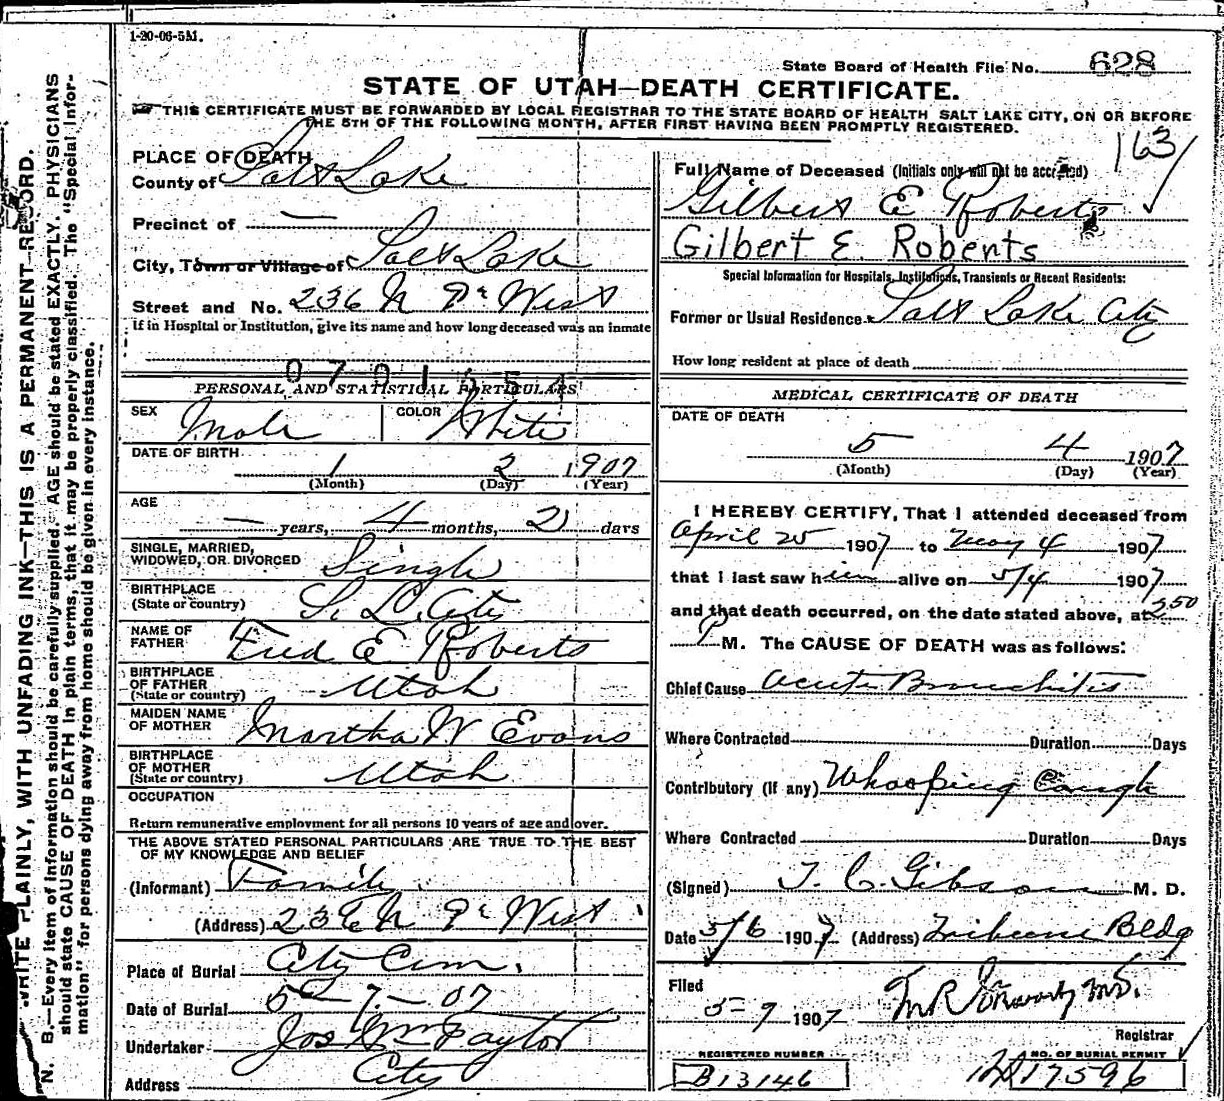 1-20-06-5M.
State Board of Health File No. 628
STATE OF UTAH—DEATH CERTIFICATE.
THIS CERTIFICATE MUST BE FORWARDED BY LOCAL REGISTRAR TO THE STATE BOARD OF HEALTH SALT LAKE CITY, ON OR BEFORE
THE 5TH OF THE FOLLOWING MONTH, AFTER FIRST HAVING BEEN PROMPTLY REGISTERED.
163
WRITE PLAINLY, WITH UNFADING INK—THIS IS A PERMANENT RECORD.
N. B.—Every item of information should be carefully supplied. AGE should be stated EXACTLY. PHYSICIANS
should state CAUSE OF DEATH in plain terms, that it may be properly classified. The "Special Infor-
mation" for persons dying away from home should be given in every instance.
PLACE OF DEATH
County of Salt Lake
Precinct of —
City, Town or Village of Salt Lake
Street and No. 236 N 9th West
If in Hospital or Institution, give its name and how long deceased was an inmate
PERSONAL AND STATISTICAL PARTICULARS
SEX Male COLOR White
DATE OF BIRTH 1 2 1907
(Month) (Day) (Year)
AGE
— years, 4 months, 2 days
SINGLE, MARRIED,
WIDOWED, OR DIVORCED Single
BIRTHPLACE
(State or country) S. L. City
NAME OF
FATHER Fred E Roberts
BIRTHPLACE
OF FATHER
(State or country) Utah
MAIDEN NAME
OF MOTHER Martha W Evans
BIRTHPLACE
OF MOTHER
(State or country) Utah
OCCUPATION
Return remunerative employment for all persons 10 years of age and over.
THE ABOVE STATED PERSONAL PARTICULARS ARE TRUE TO THE BEST
OF MY KNOWLEDGE AND BELIEF
(Informant) Family
(Address) 236 N 9th West
Place of Burial City Cem.
Date of Burial 5 — 7 — 07
Undertaker Jos Wm Taylor
Address City
Full Name of Deceased (Initials only will not be accepted)
Gilbert E Roberts
Gilbert E. Roberts
Special Information for Hospitals, Institutions, Transients or Recent Residents:
Former or Usual Residence Salt Lake City
How long resident at place of death
MEDICAL CERTIFICATE OF DEATH
DATE OF DEATH
5 4 1907
(Month) (Day) (Year)
I HEREBY CERTIFY, That I attended deceased from
April 25 1907 to May 4 1907
that I last saw him alive on 5/4 1907
and that death occurred, on the date stated above, at 2.50
P M. The CAUSE OF DEATH was as follows:
Chief Cause Acute Bronchitis
Where Contracted Duration Days
Contributory (If any) Whooping Cough
Where Contracted Duration Days
(Signed) T. C. Gibson M. D.
Date 5/6 1907 (Address) Tribune Bldg
Filed
5-7 1907
Registrar
REGISTERED NUMBER
B13146
NO. OF BURIAL PERMIT
17596